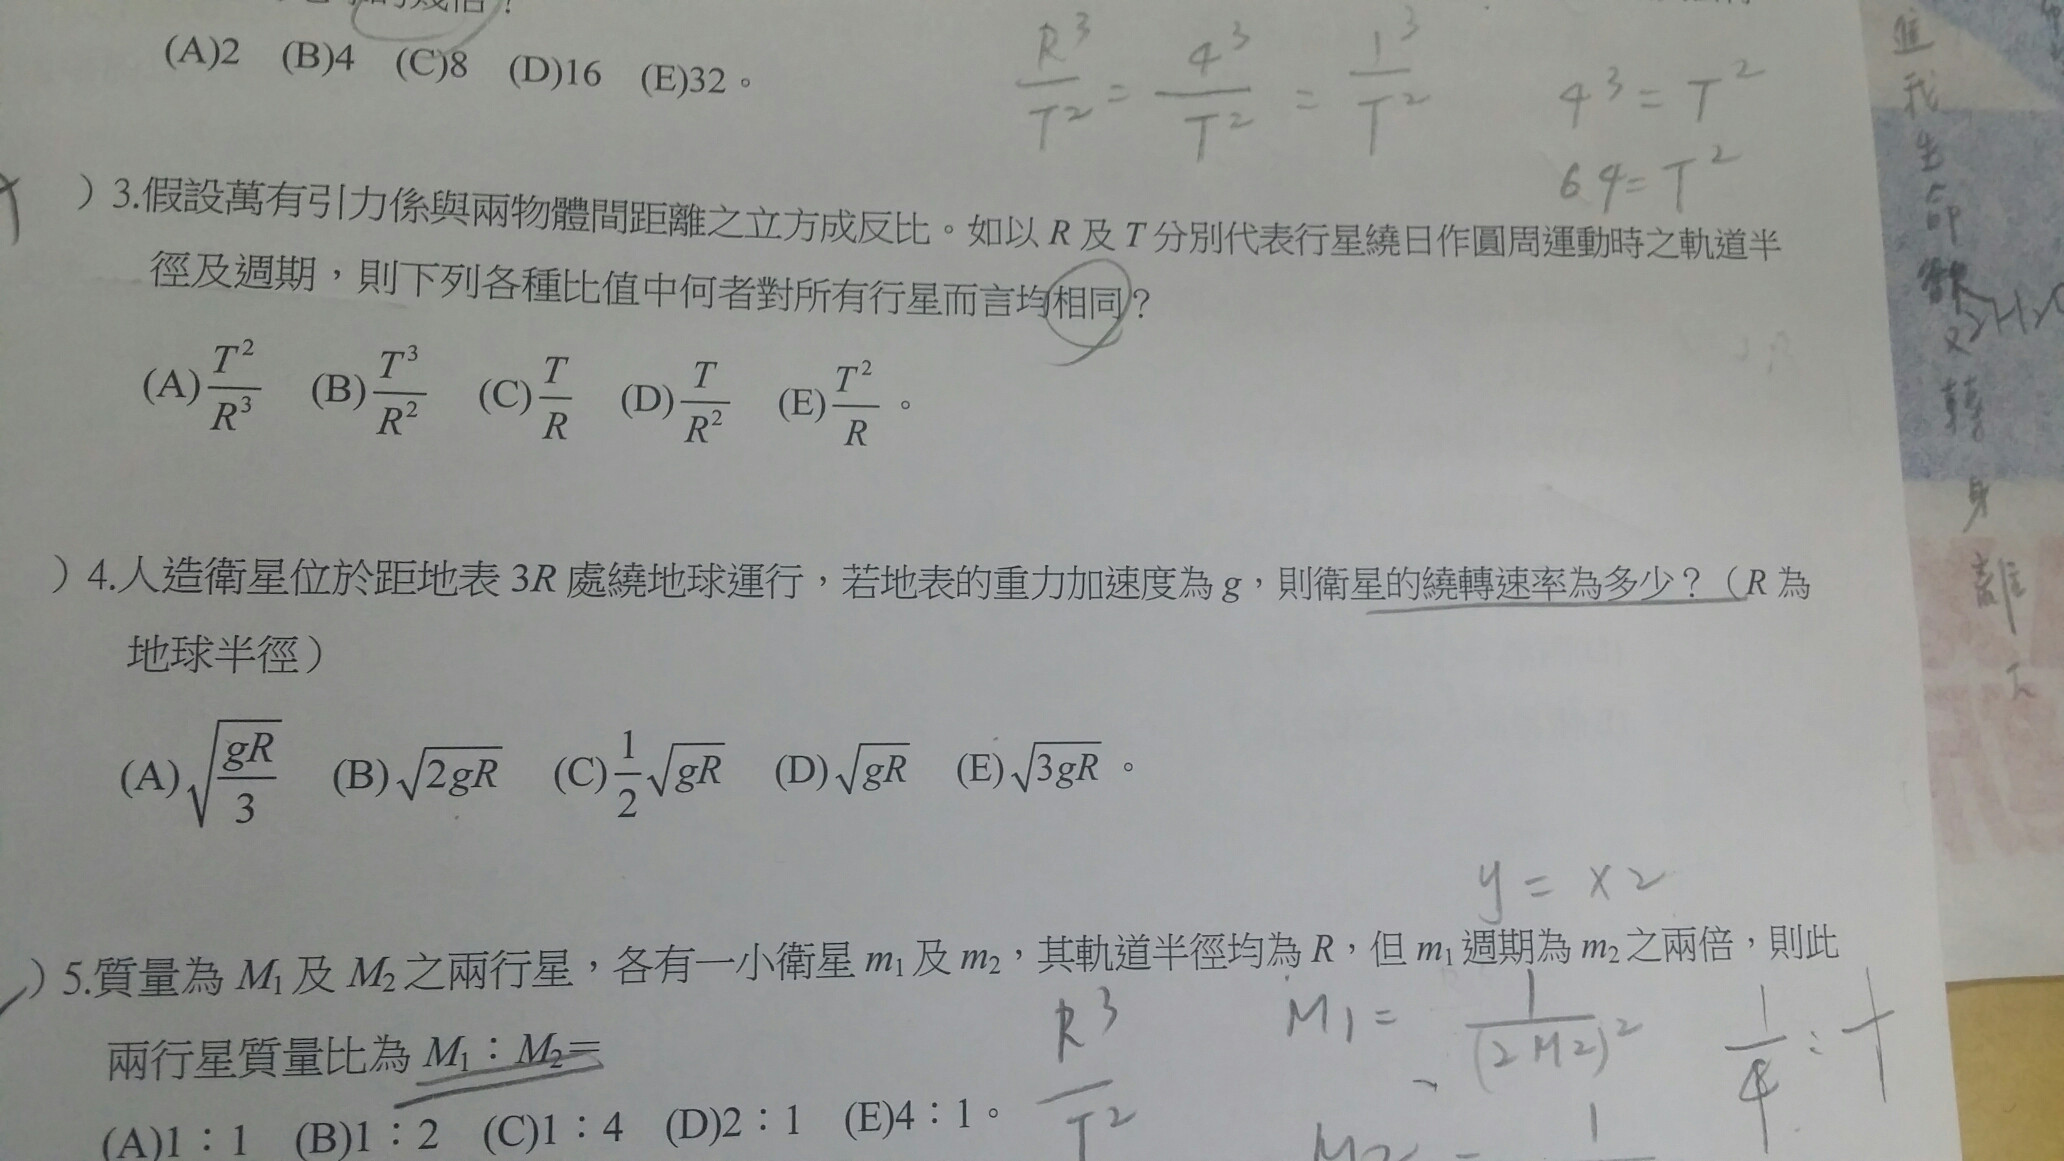 (A)2 (B)4 (C)8 (D)16 (E)32。
R³/T² = 4³/T² = 1³/T²
4³ = T²
64 = T²
)3.假設萬有引力係與兩物體間距離之立方成反比。如以 R 及 T 分別代表行星繞日作圓周運動時之軌道半
徑及週期,則下列各種比值中何者對所有行星而言均相同?
(A) T²/R³ (B) T³/R² (C) T/R (D) T/R² (E) T²/R。
)4.人造衛星位於距地表 3R 處繞地球運行,若地表的重力加速度為 g,則衛星的繞轉速率為多少?(R 為
地球半徑)
(A)√(gR/3) (B)√2gR (C)1/2√gR (D)√gR (E)√3gR。
y = x2
)5.質量為 M₁ 及 M₂ 之兩行星,各有一小衛星 m₁ 及 m₂,其軌道半徑均為 R,但 m₁ 週期為 m₂ 之兩倍,則此
兩行星質量比為 M₁:M₂=
(A)1:1 (B)1:2 (C)1:4 (D)2:1 (E)4:1。
R³/T²
M1 = 1/(2M2)²
1/4 :
M2 = 1
我
生
命
轉
身
離